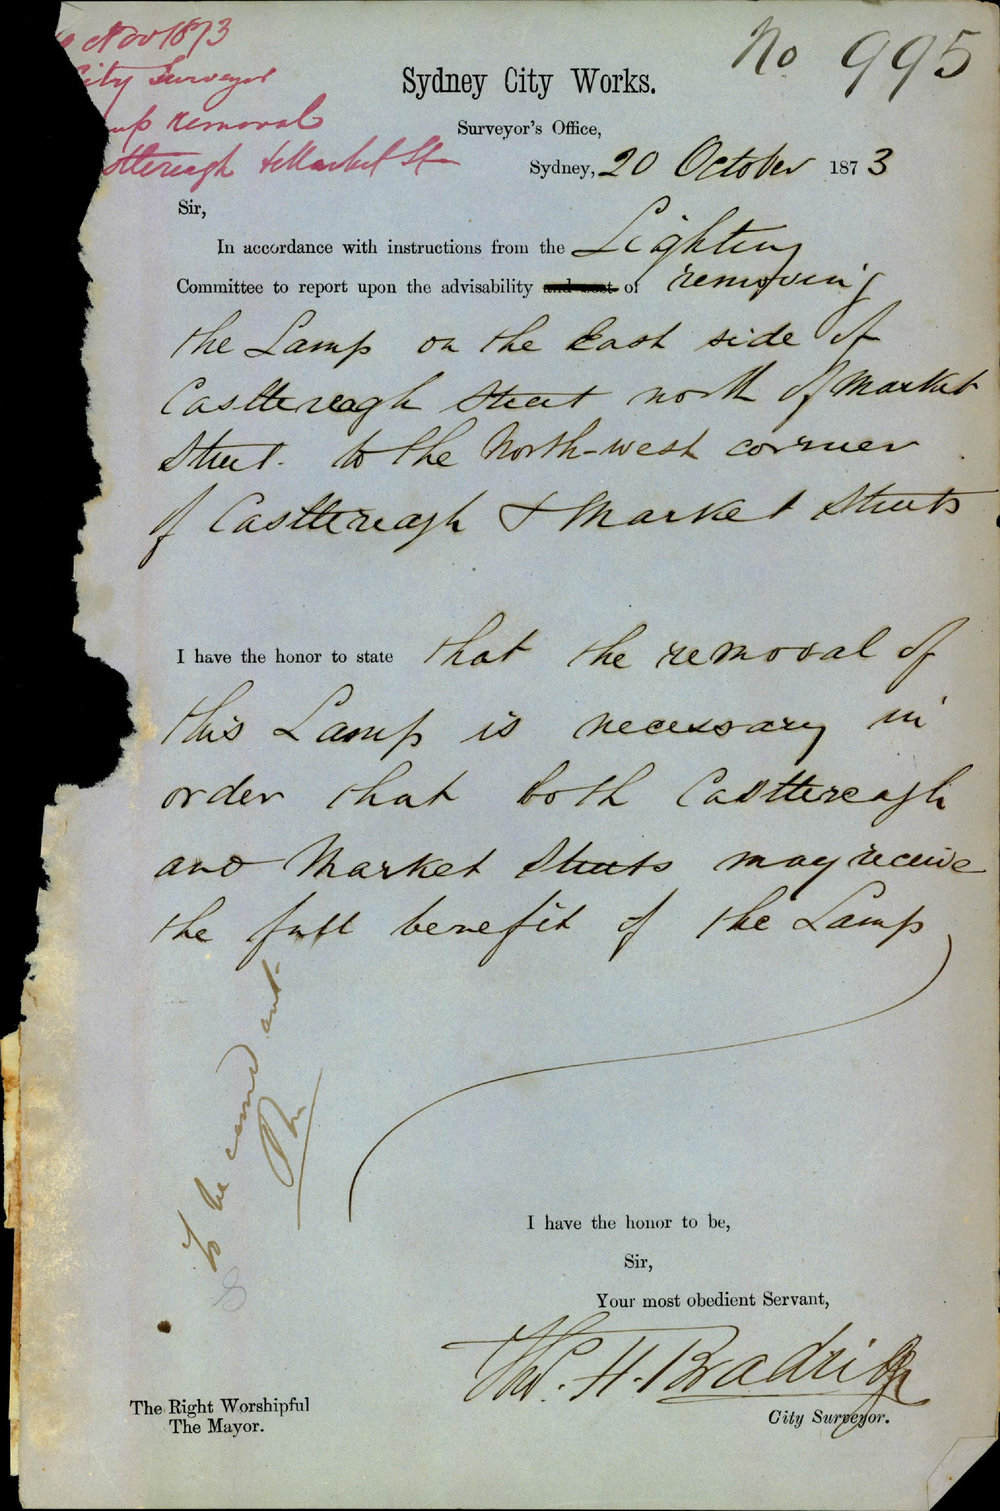 No 995
Nov 1873
City Surveyor
removal
& Market St
Sydney City Works.
Surveyor's Office,
Sydney, 20 October 1873
Sir,
In accordance with instructions from the Lighting
Committee to report upon the advisability and cost of removing
the Lamp on the East side of
Castlereagh Street north of Market
Street to the North-west corner
of Castlereagh & Market Streets
I have the honor to state that the removal of
this Lamp is necessary in
order that both Castlereagh
and Market Streets may receive
the full benefit of the Lamp
To be carried out
I have the honor to be,
Sir,
Your most obedient Servant,
Tho. H. Bradridge
City Surveyor.
The Right Worshipful
The Mayor.